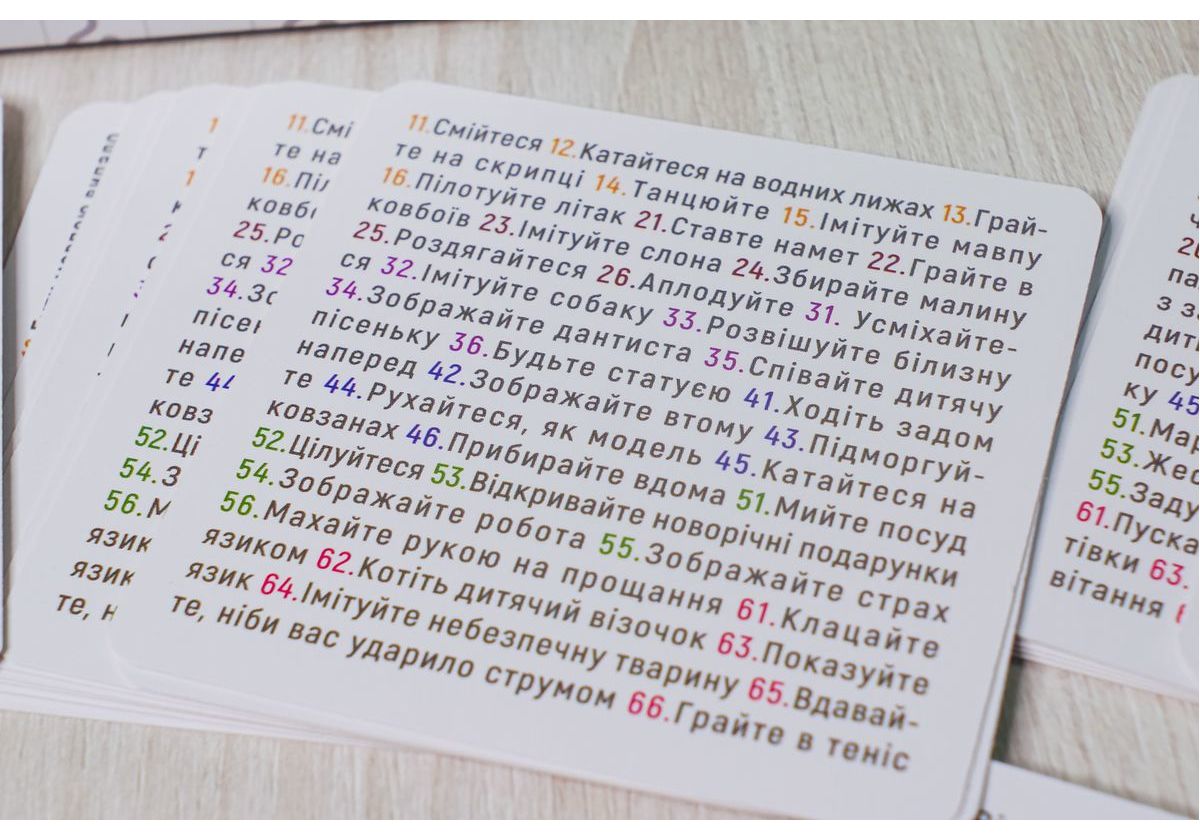 11.Смійтеся 12.Катайтеся на водних лижах 13.Грай-
те на скрипці 14.Танцюйте 15.Імітуйте мавпу
16.Пілотуйте літак 21.Ставте намет 22.Грайте в
ковбоїв 23.Імітуйте слона 24.Збирайте малину
25.Роздягайтеся 26.Аплодуйте 31. Усміхайте-
ся 32.Імітуйте собаку 33.Розвішуйте білизну
34.Зображайте дантиста 35.Співайте дитячу
пісеньку 36.Будьте статуєю 41.Ходіть задом
наперед 42.Зображайте втому 43.Підморгуй-
те 44.Рухайтеся, як модель 45.Катайтеся на
ковзанах 46.Прибирайте вдома 51.Мийте посуд
52.Цілуйтеся 53.Відкривайте новорічні подарунки
54.Зображайте робота 55.Зображайте страх
56.Махайте рукою на прощання 61.Клацайте
язиком 62.Котіть дитячий візочок 63.Показуйте
язик 64.Імітуйте небезпечну тварину 65.Вдавай-
те, ніби вас ударило струмом 66.Грайте в теніс
11.Смі
те на
16.Піл
ковбо
25.Ро
ся 32
34.Зо
пісен
напе
те 44
ковз
52.Ці
54.З
56.М
язик
язик
те, н
па
з з
дит
посу
ку 45
51.Мар
53.Жес
55.Заду
61.Пуска
тівки 63.
вітання